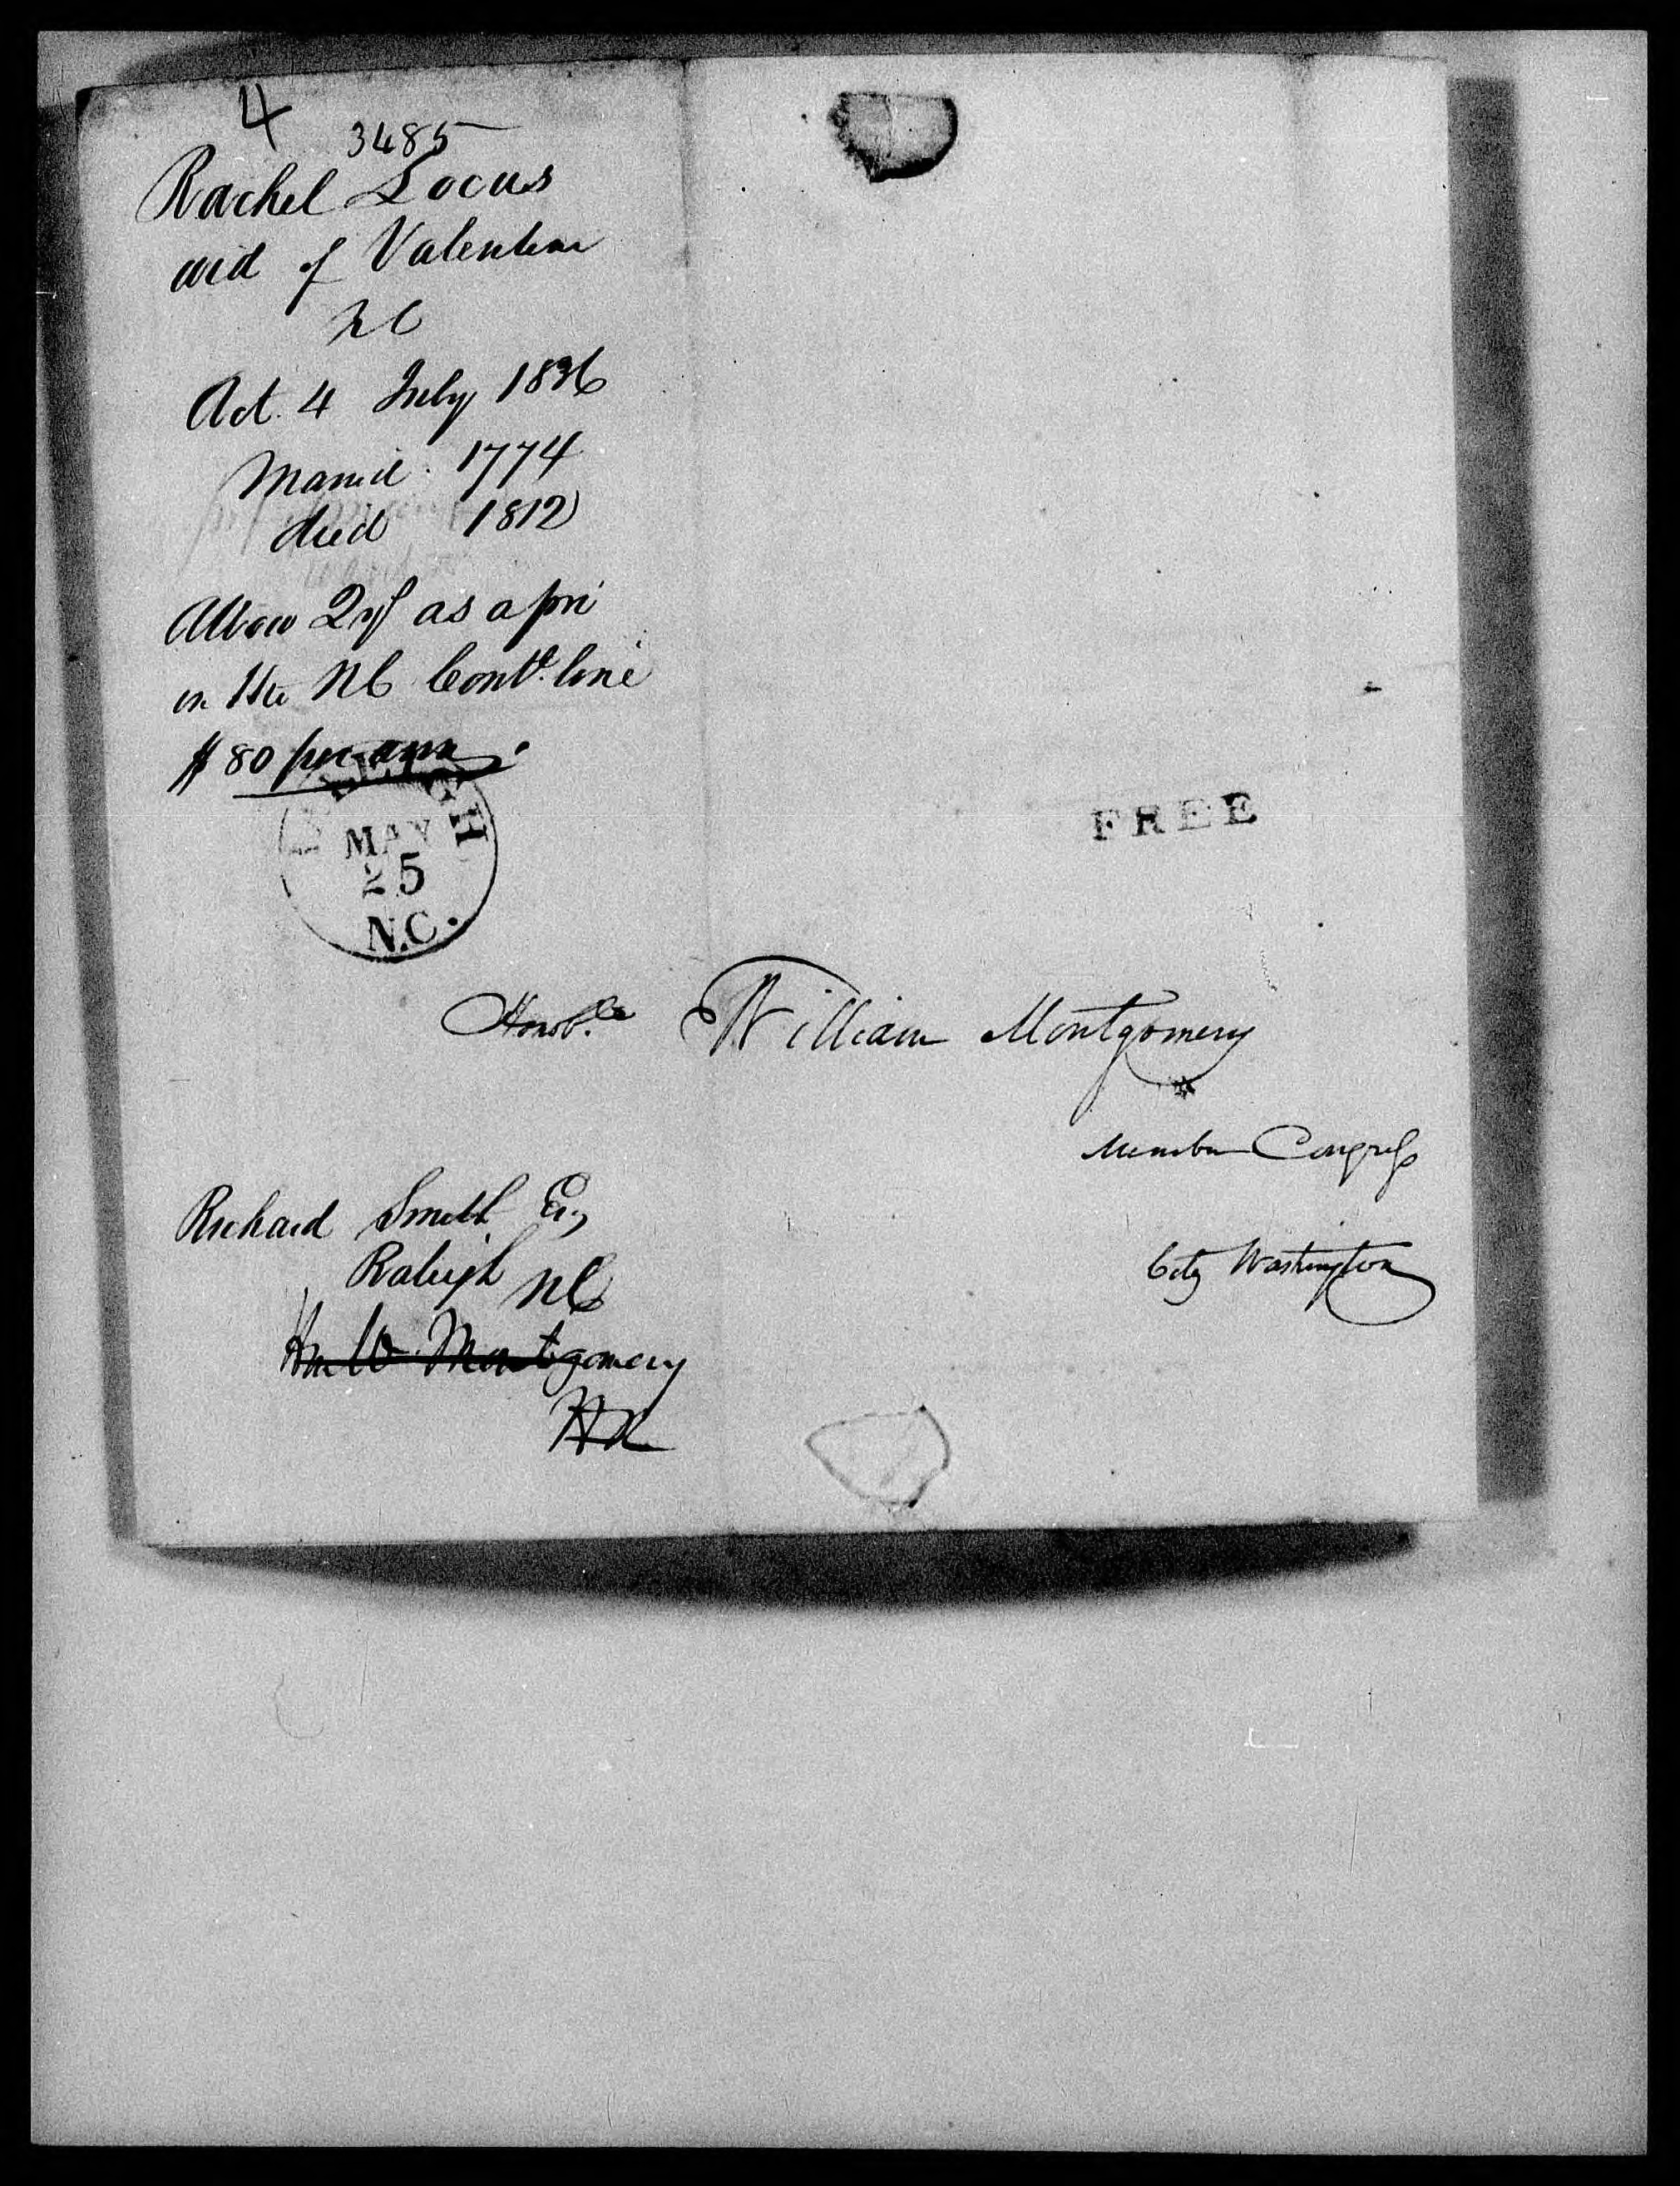 4
3485
Rachel Locus
wid of Valentine
NC
Act 4 July 1836
Married 1774
died 1812
Allow 2 yrs as a pri
in the NC Contl. line
$80 per ann.
MAY
25
N.C.
FREE
Honoble. William Montgomery
Member Congress
City Washington
Richard Smith Esq
Raleigh NC
Hon W Montgomery
HR